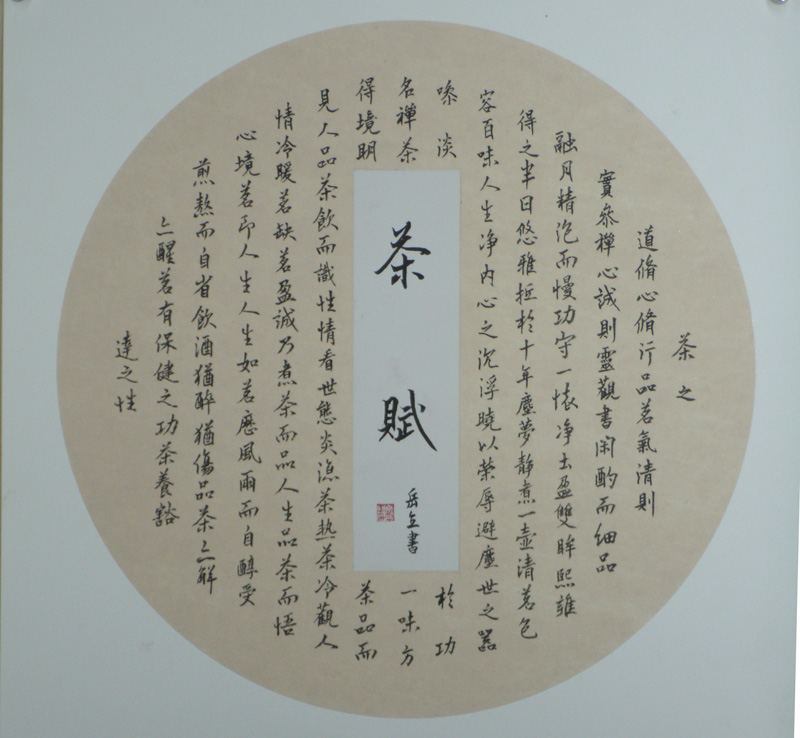 茶之
道脩心脩行品茗氣清則
實參禪心誠則靈觀書閑酌而細品
融月精泡而慢功守一懐净土盈雙眸熙雍
得之半日悠雅抵於十年塵夢静煮一壶清茗包
容百味人生净内心之沉浮曉以榮辱避塵世之嚣
嗓淡於功
名禪茶一味方
得境明茶品而
見人品茶飲而識性情看世態炎凉茶热茶冷觀人
情冷暖茗缺茗盈誠乃煮茶而品人生品茶而悟
心境茗即人生人生如茗歷風雨而自醇受
煎熬而自省飲酒猶醉猶傷品茶亦解
亦醒茗有保健之功茶養豁
達之性
茶賦
岳立書